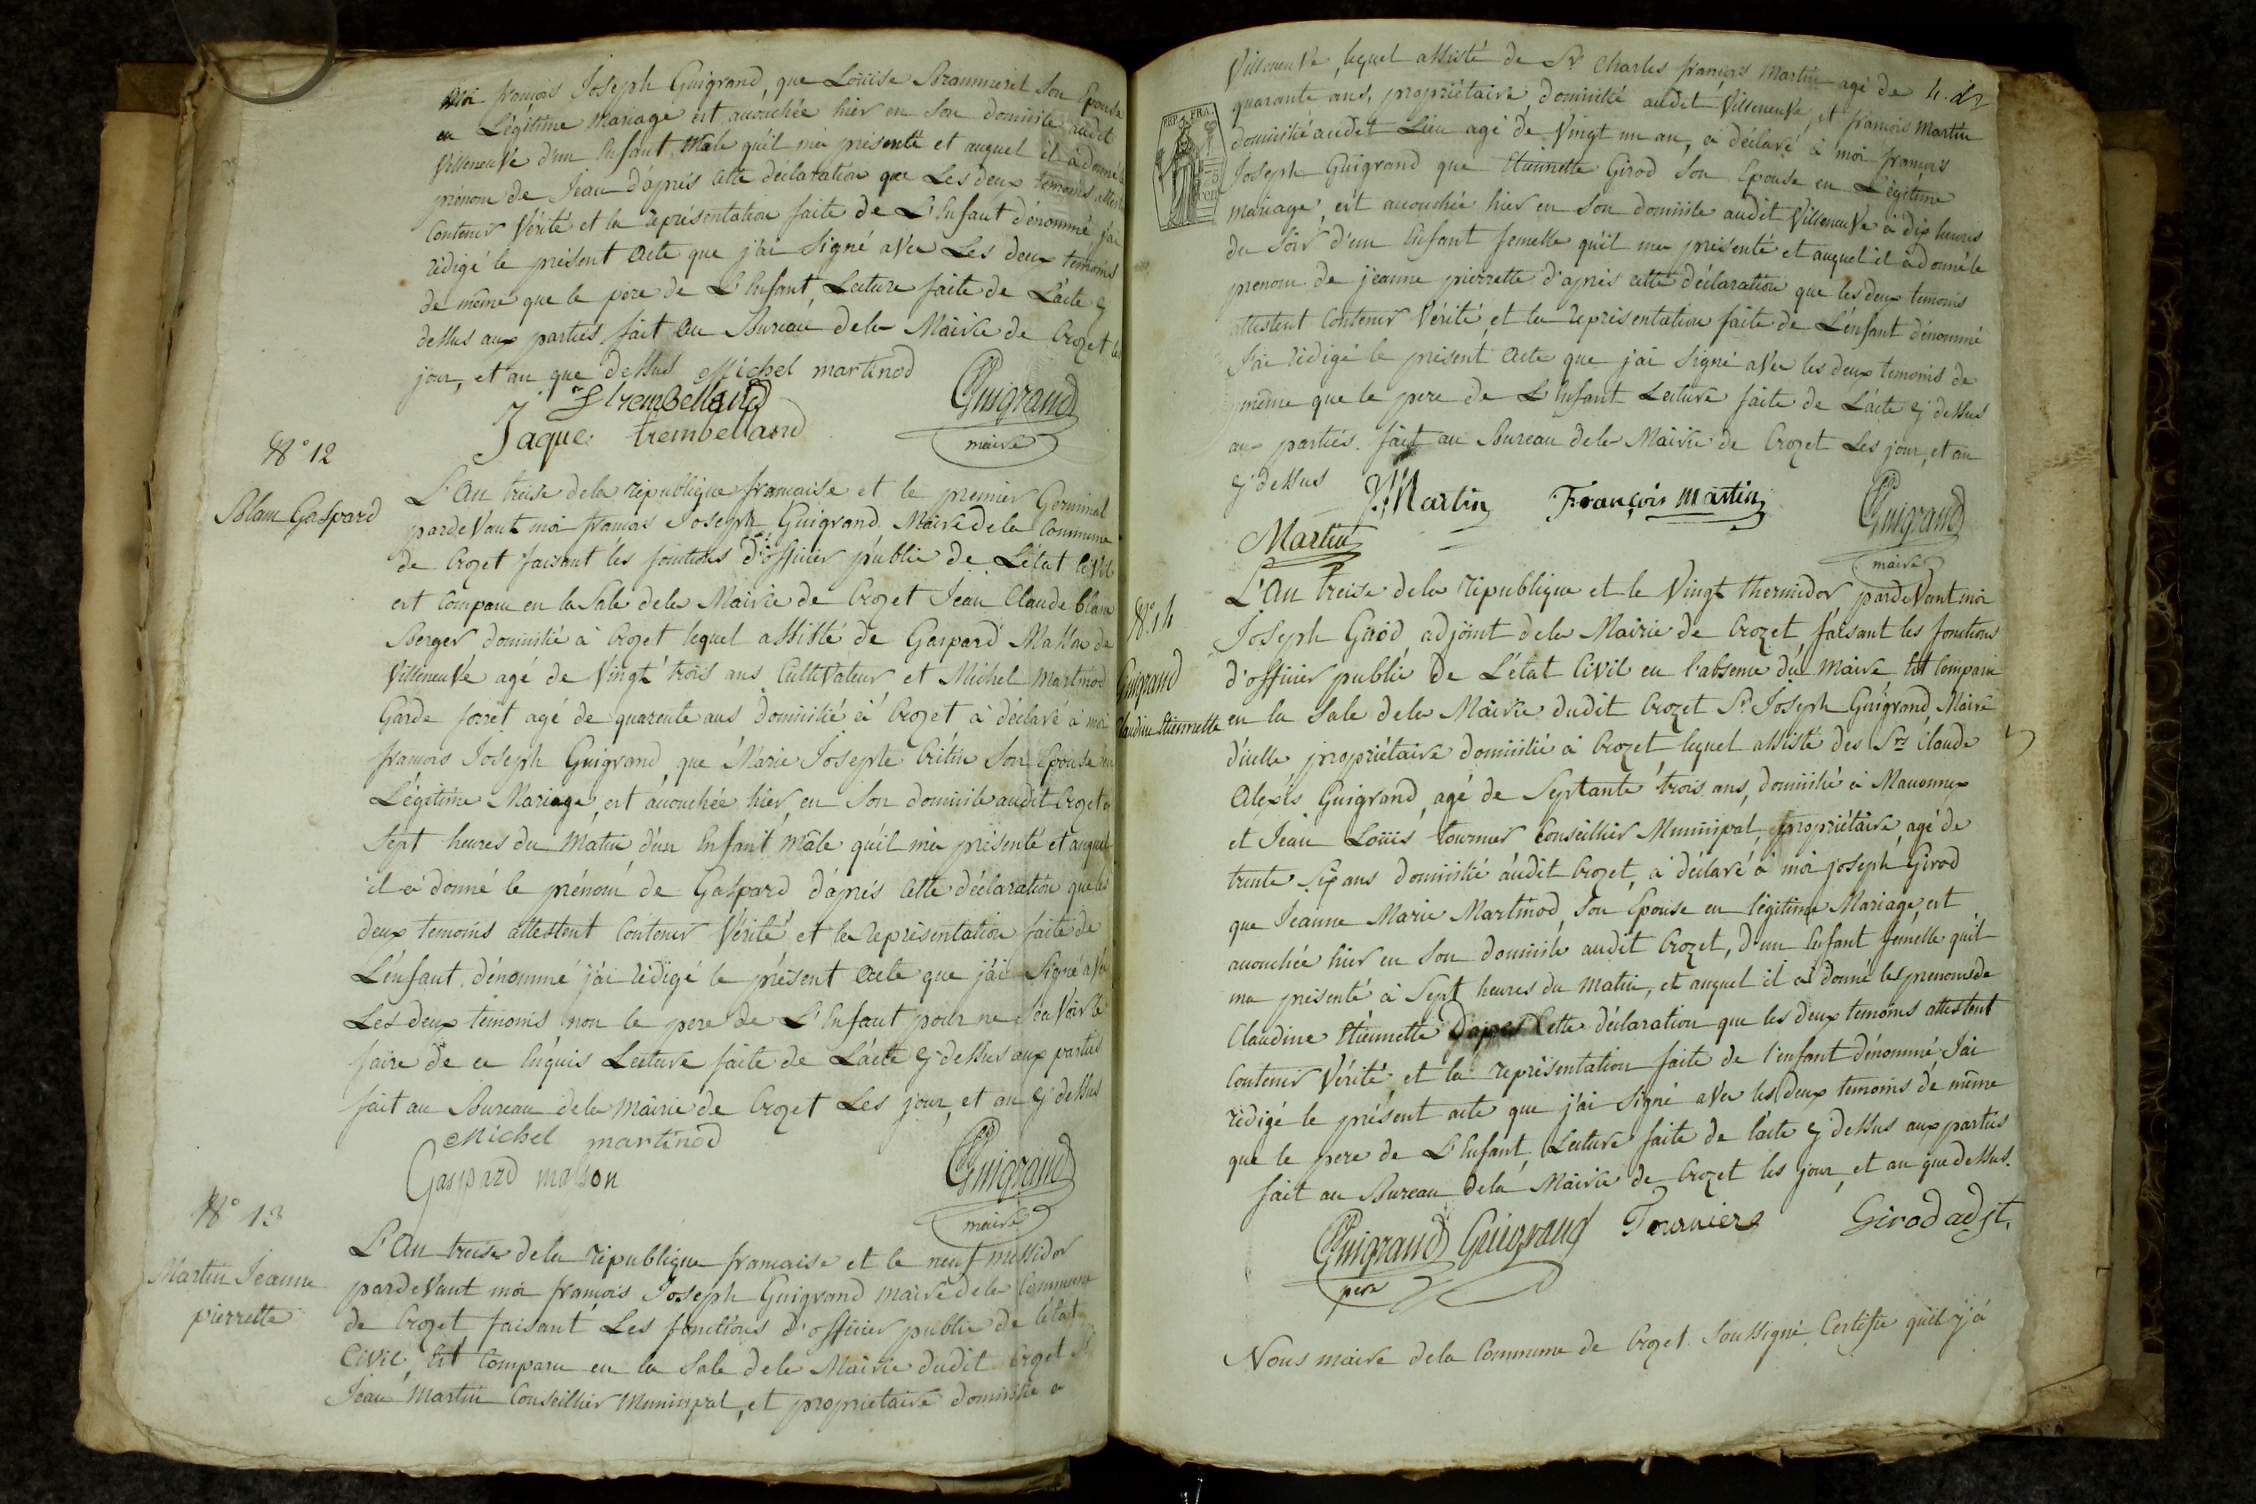 moi françois Joseph Guigrand, que Loüise Brammerel Son Epouse
en Légitime Mariage est accouchée hier en Son domicile audit
Villeneuve d'un Enfant Mâle qu'il m'a présenté et auquel il a donné le
prénom de Jean d'aprés cette déclaration que Les deux temoins attestent
Contenir Vérité et la représentation faite de L'Enfant dénommé j'ai
rédigé le présent acte que j'ai Signé avec Les deux temoins
de même que le pere de L'Enfant, Lecture faite de L'acte cy
dessus aux parties fait au Bureau de la Mairie de Crozet les
jour, et an que dessus Michel martinod
trembelland
Jaque trembelland
Guigrand
maire
N° 12
Blanc Gaspard
L'An treise de la république francaise et le premier Germinal
pardevant moi francois Joseph Guigrand Maire de la Commune
de Crozet faisant les fonctions d'officier public de L'état Civil
est Comparu en la Sale de la Mairie de Crozet Jean Claude blanc
Berger domicilié à Crozet lequel assisté de Gaspard Masson de
Villeneuve agé de Vingt trois ans Cultivateur et Michel Martinod
Garde forret agé de quarente ans domicilié à Crozet a déclaré à moi
françois Joseph Guigrand, que Marie Josephe Crétin Son Epouse en
Légitime Mariage, est accouchée hier, en Son domicile audit Crozet a
Sept heures du Matin d'un Enfant Mâle qu'il m'a présenté et auquel
il a donné le prénom de Gaspard d'aprés Cette déclaration que les
deux temoins attestent Contenir Vérité et la représentation faite de
L'enfant dénommé j'ai rédigé le présent acte que j'ai Signé avec
Les deux temoins non le pere de L'Enfant pour ne Sçavoir le
faire de ce Enquis Lecture faite de L'acte cy dessus aux parties
fait au Bureau de la Mairie de Crozet Les jour, et an cy dessus
Michel martinod
Gaspard masson
Guigrand
maire
N° 13
Martin Jeanne
pierrette
L'An treise de la république francaise et le neuf messidor
pardevant moi françois Joseph Guigrand maire de la Commune
de Crozet faisant Les fonctions d'officier public de l'état
Civil, Est Comparu en la Sale de la Mairie dudit Crozet Sr
Jean Martin Conseillier Municipal, et propriétaire domicilié a
Villeneuve, lequel assisté de Sr Charles françois Martin agé de
quarante ans, propriétaire, domicilié audit Villeneuve, et francois Martin
domicilié audit Lieu agé de Vingt un an, a déclaré à moi françois
Joseph Guigrand que Etiennette Girod Son Epouse en Légitime
Mariage, est accouchée hier en Son domicile audit Villeneuve à dix heures
du Soir d'un Enfant femelle qu'il m'a présenté et auquel il a donné le
prenom de jeanne pierrette d'aprés cette déclaration que les deux temoins
attestent Contenir Vérité, et la représentation faite de L'enfant dénommé
J'ai rédigé le présent acte que j'ai Signé avec les deux temoins de
même que le pere de L'Enfant Lecture faite de L'acte cy dessus
aux parties. fait au Bureau de la Mairie de Crozet Les jour, et an
cy dessus
Martin
François martin
Martin
Guigrand
maire
REP. FRA.
N° 14
Guigrand
Claudine Etiennette
L'An treise de la république et le Vingt thermidor pardevant moi
Joseph Girod adjoint de la Mairie de Crozet faisant les fonctions
d'officier public de L'état Civil en l'absence du Maire, Est Comparu
en la Sale de la Mairie dudit Crozet Sr Joseph Guigrand, Maire
d'icelle propriétaire domicilié à Crozet, lequel assisté des Srs Claude
Alexis Guigrand, agé de Septante trois ans, domicilié à Maconnex
et Jean Loüis tournier Conseillier Municipal, propriétaire, agé de
trente Six ans domicilié audit Crozet, a déclaré à moi joseph Girod
que Jeanne Marie Martinod, Son Epouse en légitime Mariage, est
accouchée hier en Son domicile audit Crozet, d'un Enfant femelle qu'il
ma présenté à Sept heures du Matin, et auquel il a donné les prenoms de
Claudine Etiennette D'apres Cette déclaration que les deux temoins attestent
Contenir Vérité, et la représentation faite de l'enfant dénommé J'ai
rédigé le présent acte que j'ai Signé avec les deux temoins de même
que le pere de L'Enfant, Lecture faite de l'acte cy dessus aux parties
fait au Bureau de la Mairie de Crozet les jour, et an que dessus.
Guigrand Guigrand Tournier Girod adjt.
pere
Nous maire de la Commune de Crozet Soussigné Certifie qu'il y a